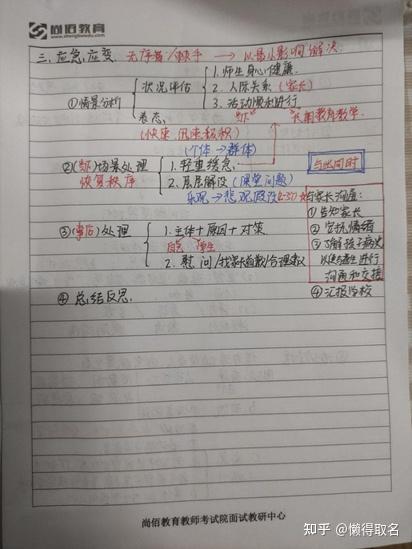 尚佰教育
www.shangbaiedu.com
三、应急应变. 无序者/棘手 → 以最小影响解决.
①情景分析
状况评估
1. 师生身心健康.
2. 人际关系(家长)
3. 活动顺利进行
表态.
长期教育教学.
(快速 迅速 积极)
(个体→群体)
②(动)场景处理
恢复秩序
1. 轻重缓急.
2. 层层解设(课堂问题)
乐观→悲观假设
与此同时
③(事后)处理
1. 主体+原因+对策
自己 学生
2. 慰问/找家长道歉/合理建议
与家长沟通:
①告知家长
②安抚情绪
③了解孩子病史
以便与医生进行
沟通和交接
④汇报学校
④总结反思.
尚佰教育教师考试院面试教研中心
知乎 @懒得取名